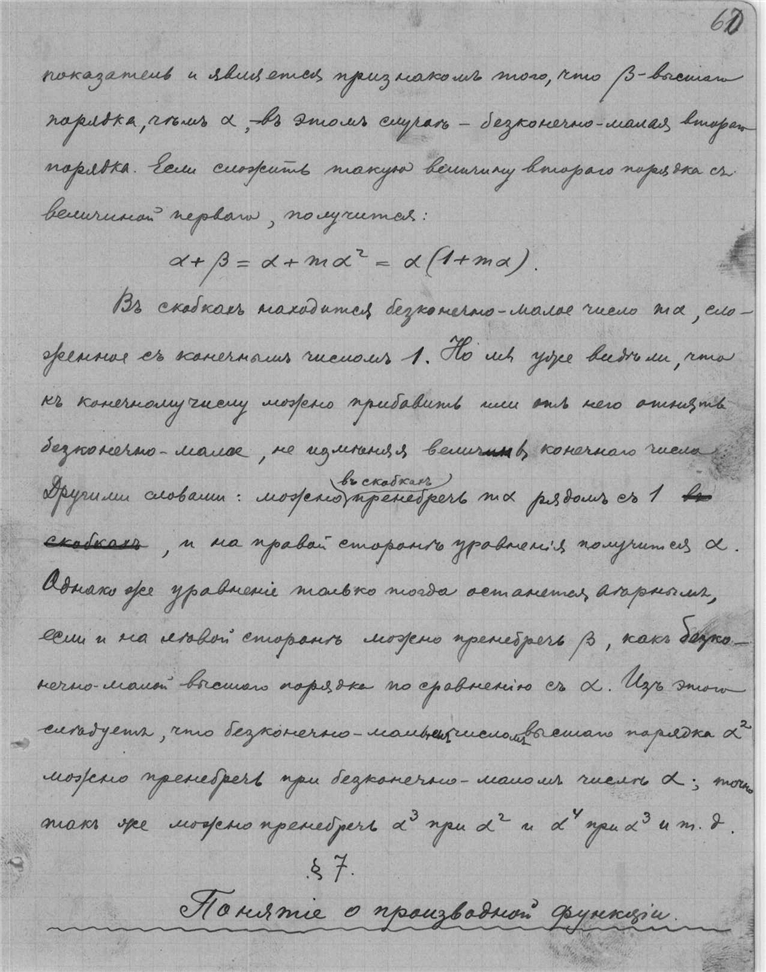 показатель и является признакомъ того, что β-высшаго
порядка, чѣмъ α, – въ этомъ случаѣ – безконечно-малая второго
порядка. Если сложить такую величину второго порядка съ
величиной перваго, получится:
α + β = α + mα² = α(1 + mα).
Въ скобкахъ находится безконечно-малое число mα, сло-
женное съ конечнымъ числомъ 1. Но мы уже видѣли, что
къ конечному числу можно прибавить или отъ него отнять
безконечно-малое, не измѣняя величины конечнаго числа.
въ скобкахъ
Другими словами: можно пренебречь mα рядомъ съ 1 въ
скобкахъ, и на правой сторонѣ уравненія получится α.
Однако же уравненіе только тогда останется вѣрнымъ,
если и на лѣвой сторонѣ можно пренебречь β, какъ безко-
нечно-малой высшаго порядка по сравненію съ α. Изъ этого
слѣдуетъ, что безконечно-малымъ числомъ высшаго порядка α²
можно пренебречь при безконечно-маломъ числѣ α; точно
такъ же можно пренебречь α³ при α² и α⁴ при α³ и т. д.
§ 7.
Понятіе о производной функціи.